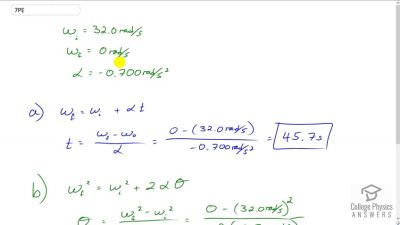 7PE
ωᵢ = 32.0 rad/s
ω_f = 0 rad/s
α = -0.700 rad/s²
a) ω_f = ωᵢ + αt
t = (ω_f - ω₀)/α = (0 - (32.0 rad/s))/(-0.700 rad/s²) = 45.7 s
b) ω_f² = ωᵢ² + 2αθ
θ = ω_f² - ωᵢ² = 0 - (32.0 rad/s)²
College Physics
ANSWERS